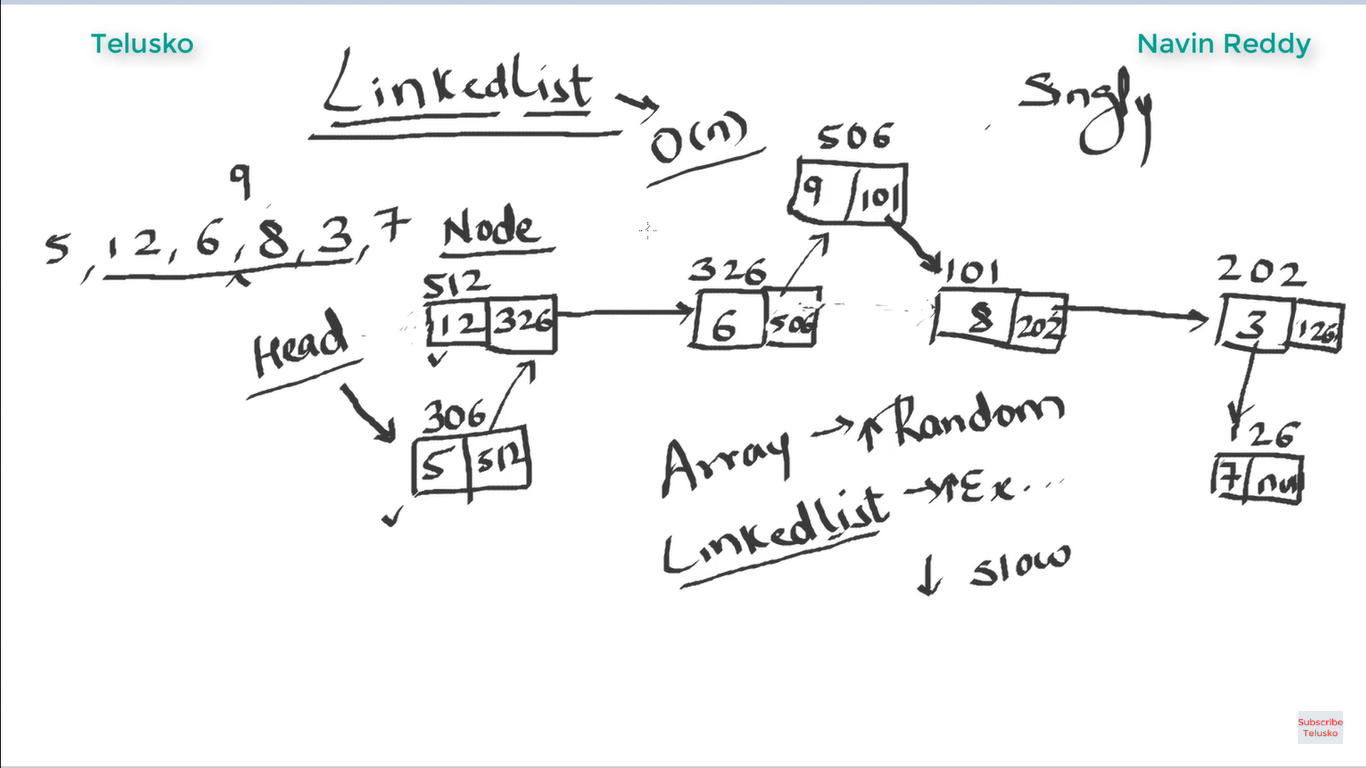 Telusko
Navin Reddy
LinkedList
O(n)
Singly
9
5, 12, 6, 8, 3, 7
Node
506
9 101
512
12 326
326
6 506
101
8 202
202
3 126
Head
306
5 512
126
7 nul
Array → ↑ Random
Linkedlist → ↑ Ex...
↓ Slow
Subscribe
Telusko